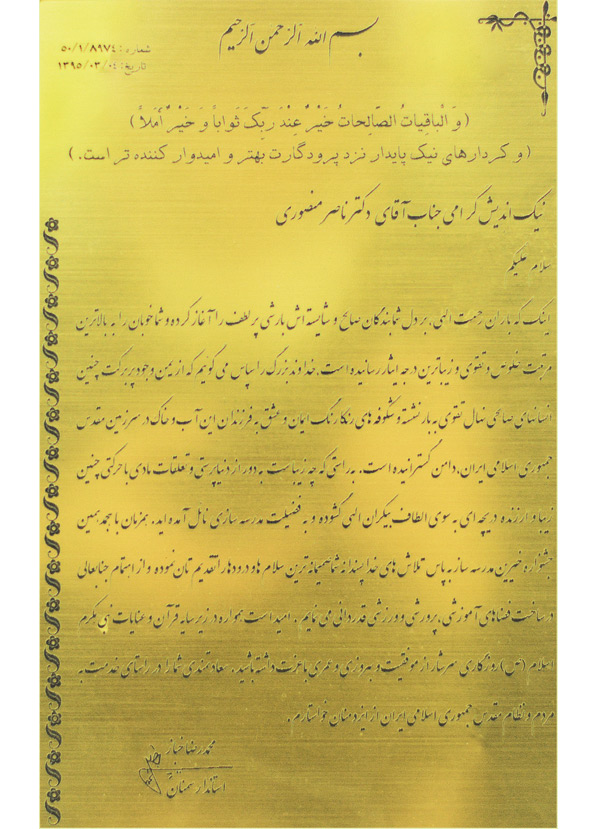 بسم الله الرحمن الرحیم
شماره: ۵۰/۱/۸۹۷۴
تاریخ: ۱۳۹۵/۰۳/۰۴
( وَ الْباقِیاتُ الصّالِحاتُ خَیْرٌ عِنْدَ رَبِّکَ ثَواباً وَ خَیْرٌ أَمَلاً )
( و کردارهای نیک پایدار نزد پرودگارت بهتر و امیدوار کننده تر است. )
نیک اندیش گرامی جناب آقای دکتر ناصر منصوری
سلام علیکم
اینک که باران رحمت الهی، بر دل شما بندگان صالح و شایسته اش بارشی پر لطف را آغاز کرده و شما خوبان را به بالاترین
مرتبت خلوص و تقوی و زیباترین درجه ایثار رسانیده است، خداوند بزرگ را سپاس می گوئیم که از یمن وجود پر برکت چنین
انسانهای صالحی نهال تقوی به بار نشسته و شکوفه های رنگارنگ ایمان و عشق به فرزندان این آب و خاک در سرزمین مقدس
جمهوری اسلامی ایران، دامن گسترانیده است. به راستی که چه زیباست به دور از دنیاپرستی و تعلقات مادی با حرکتی چنین
زیبا و ارزنده دریچه ای به سوی الطاف بیکران الهی گشوده و به فضیلت مدرسه سازی نائل آمده اید. همزمان با هجدهمین
جشنواره خیرین مدرسه ساز به پاس تلاش های خداپسندانه شما صمیمانه ترین سلام ها و درودها را تقدیم تان نموده و از اهتمام جنابعالی
در ساخت فضاهای آموزشی، پرورشی و ورزشی قدردانی می نمایم. امید است همواره در زیر سایه قرآن و عنایات نبی مکرم
اسلام (ص) روزگاری سرشار از موفقیت و بهروزی و عمری با عزت داشته باشید. سعادتمندی شما را در راستای خدمت به
مردم و نظام مقدس جمهوری اسلامی ایران از ایزد منان خواستارم.
محمدرضا خباز
استاندار سمنان